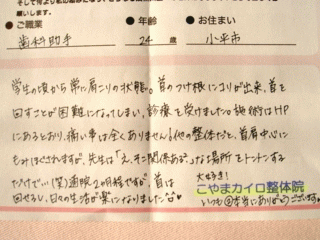 願いします。
● ご職業 ● 年齢 ● お住まい
歯科助手 24 歳 小平市
学生の頃から常に肩こりの状態。首のつけ根にコリが出来、首を
回すことが困難になってしまい、診療を受けました。施術はHP
にあるとおり、痛い事は全くありません!他の整体だと、首肩中心に
もみほぐされますが、先生は「え、そこ関係ある?」な場所をトントンする
だけで…(笑)通院2ヶ月程ですが、首は
回せるし、日々の生活が楽になりました
大好き!
こやまカイロ整体院
いつも本当にありがとうございます。